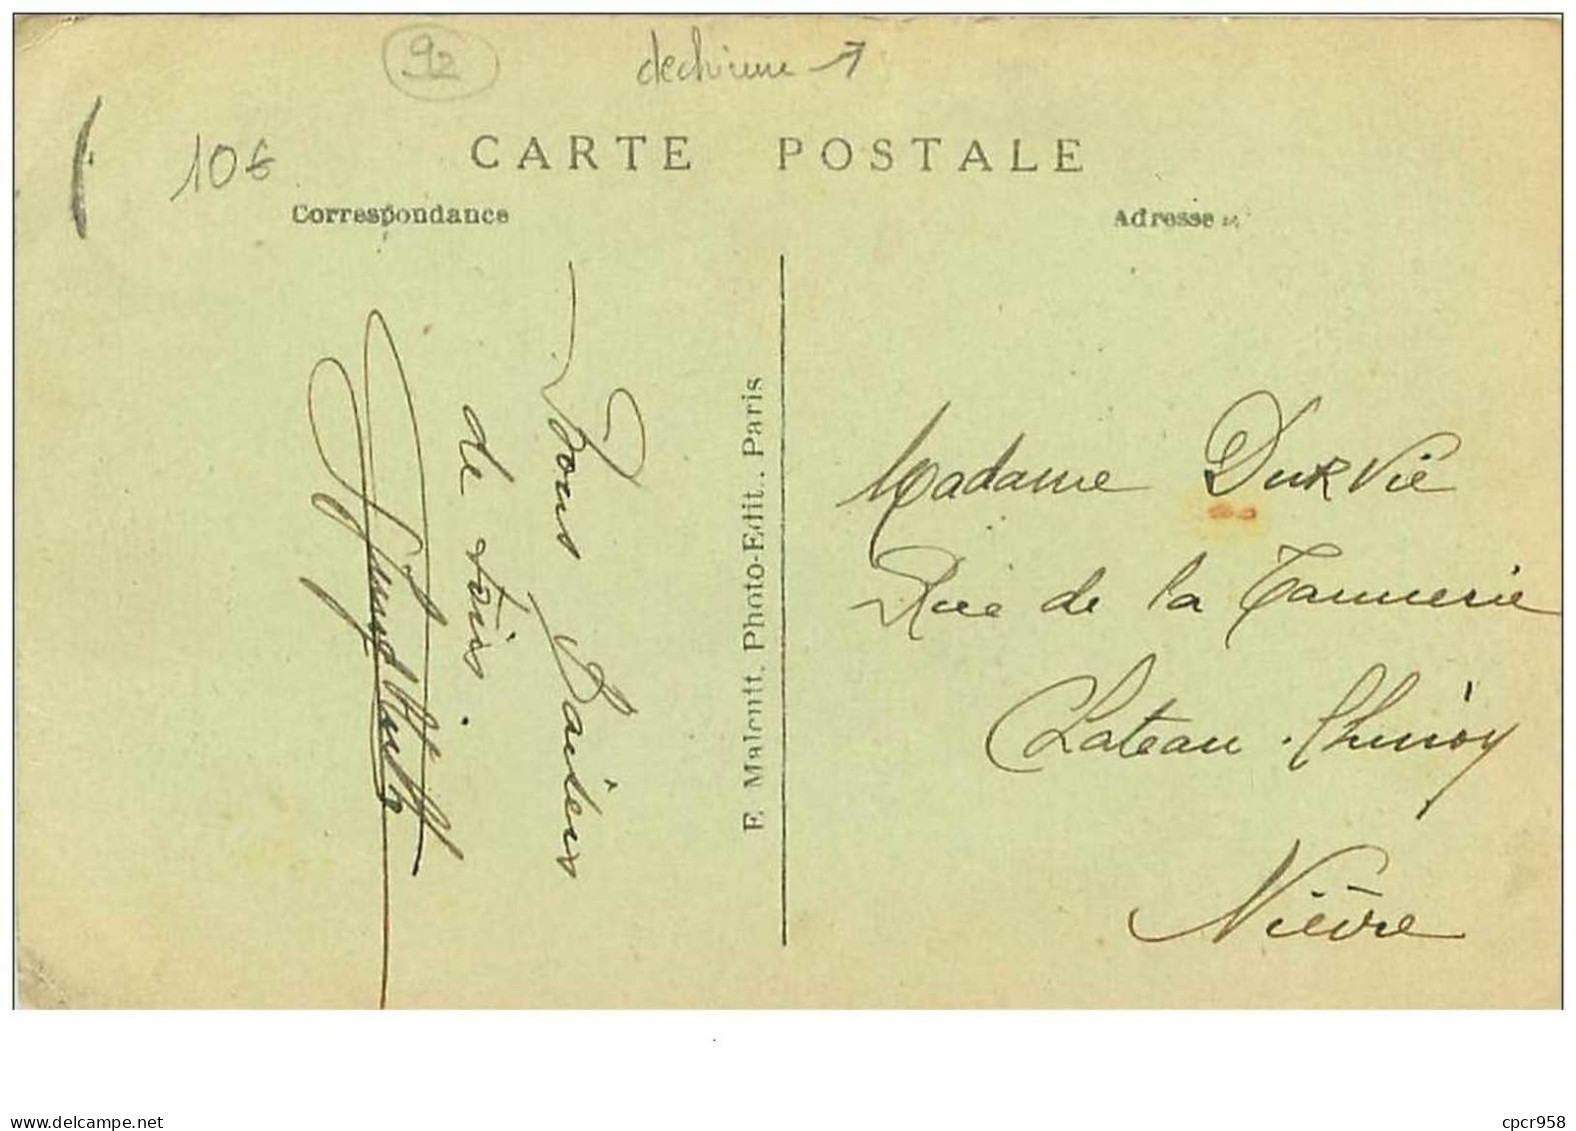 92
dechirure
10€
CARTE POSTALE
Correspondance
Adresse
Bons Baisers
de tous
F. Malcuit, Photo-Edit., Paris
Madame Durvie
Rue de la Tannerie
Chateau-Chinon
Nièvre
delcampe.net
cpcr958